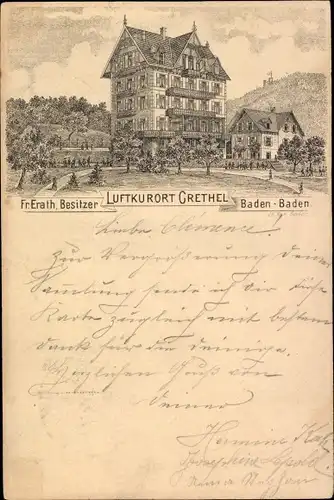 Fr. Erath, Besitzer
LUFTKURORT GRETHEL
Baden-Baden
Liebe Clémence!
Zur Vergrößerung deiner
Sammlung sende ich dir diese
Karte zugleich mit bestem
Dank für die deinige.
Herzlichen Gruß von
deiner
Hermine
Josephine
Anna